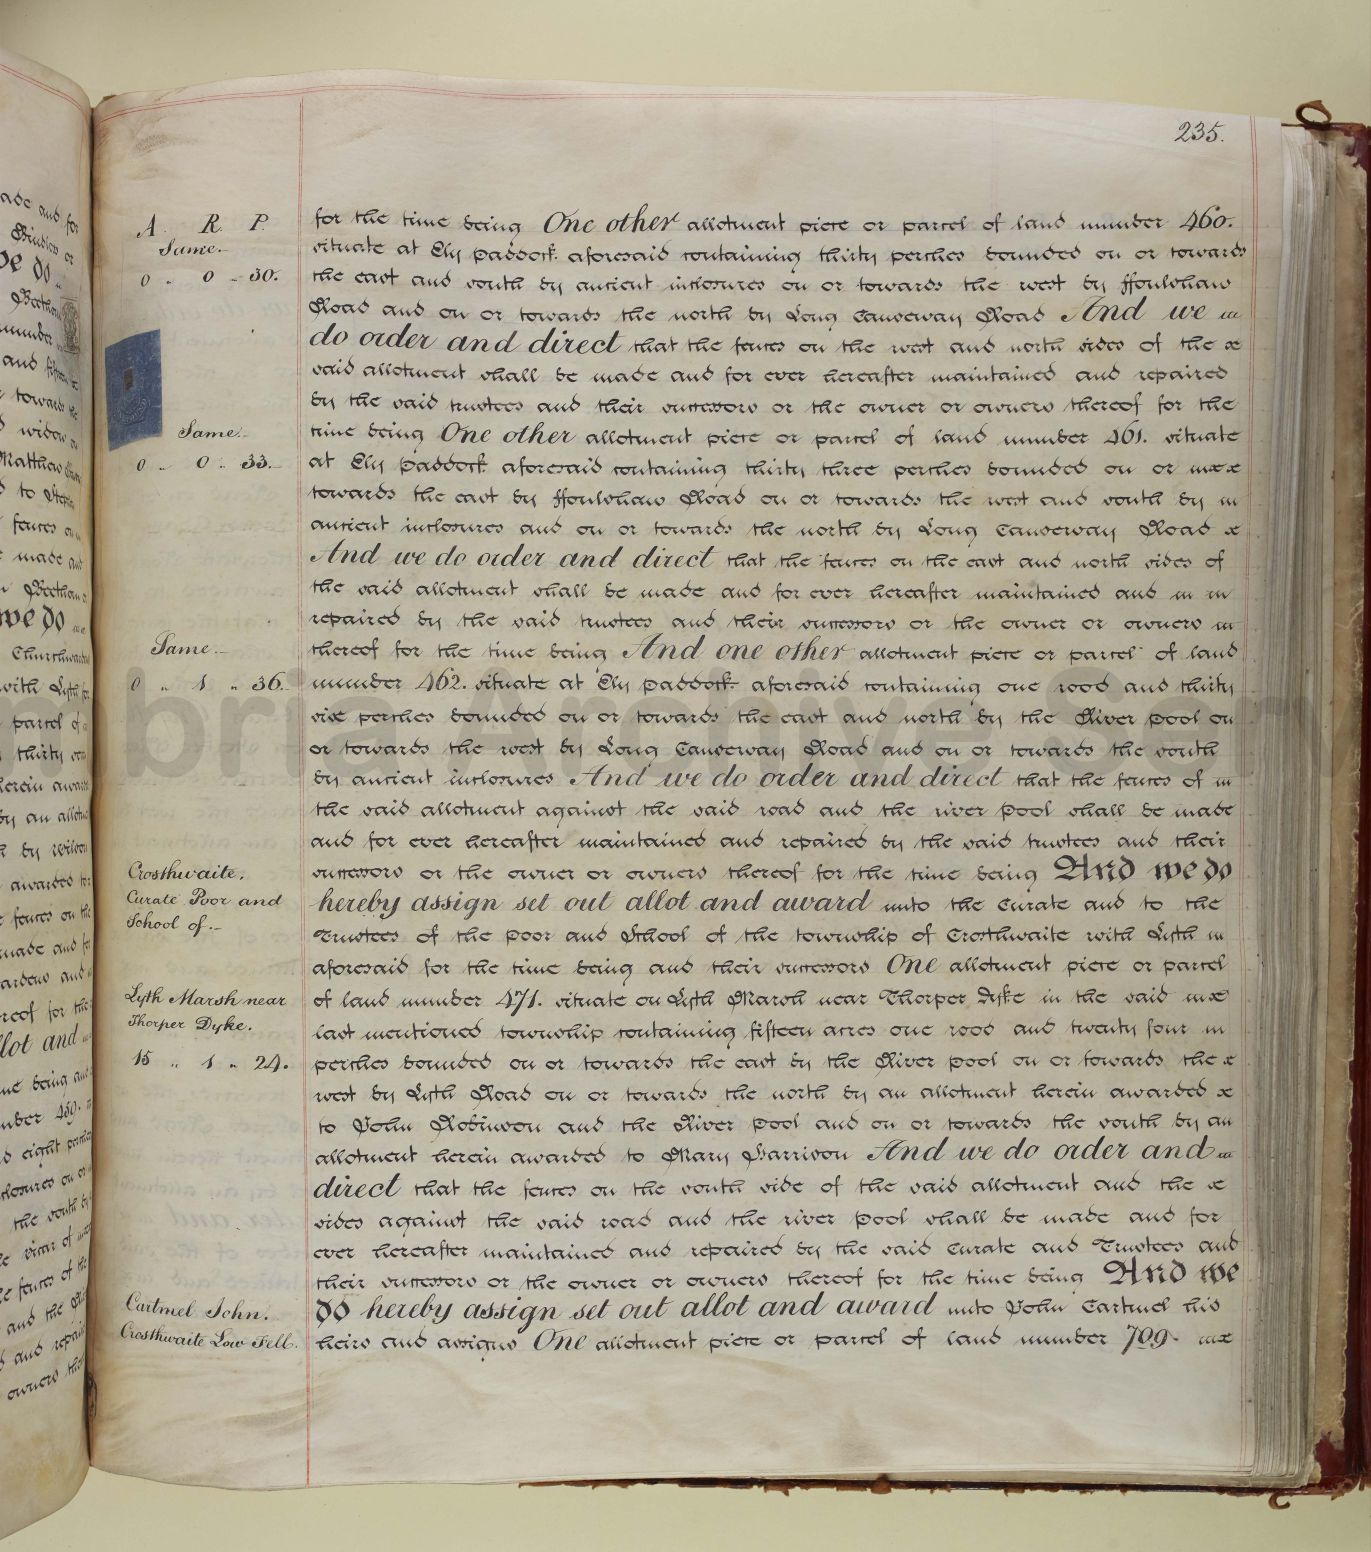 235.
A. R. P.
Same.
0 .. 0 .. 30.
Same.
0 .. 0 .. 33.
Same.
0 .. 1 .. 36.
Crosthwaite.
Curate Poor and
School of.
Lyth Marsh near
Thorper Dyke.
15 .. 1 .. 24.
Cartmel John.
Crosthwaite Low Fell.
for the time being One other allotment piece or parcel of land number 460.
situate at Ely Paddock aforesaid containing thirty perches bounded on or towards
the east and south by ancient inclosures on or towards the west by ffoulshaw
Road and on or towards the north by Long Causeway Road And we
do order and direct that the fences on the west and north sides of the
said allotment shall be made and for ever hereafter maintained and repaired
by the said trustees and their successors or the owner or owners thereof for the
time being One other allotment piece or parcel of land number 461. situate
at Ely Paddock aforesaid containing thirty three perches bounded on or
towards the east by ffoulshaw Road on or towards the west and south by
ancient inclosures and on or towards the north by Long Causeway Road
And we do order and direct that the fences on the east and north sides of
the said allotment shall be made and for ever hereafter maintained and
repaired by the said trustees and their successors or the owner or owners
thereof for the time being And one other allotment piece or parcel of land
number 462. situate at Ely Paddock aforesaid containing one rood and thirty
six perches bounded on or towards the east and north by the River Pool on
or towards the west by Long Causeway Road and on or towards the south
by ancient inclosures And we do order and direct that the fences of
the said allotment against the said road and the river Pool shall be made
and for ever hereafter maintained and repaired by the said trustees and their
successors or the owner or owners thereof for the time being And we do
hereby assign set out allot and award unto the Curate and to the
Trustees of the Poor and School of the township of Crosthwaite with Lyth
aforesaid for the time being and their successors One allotment piece or parcel
of land number 471. situate on Lyth Marsh near Thorper Dyke in the said
last mentioned township containing fifteen acres one rood and twenty four
perches bounded on or towards the east by the River Pool on or towards the
west by Lyth Road on or towards the north by an allotment herein awarded
to John Robinson and the River Pool and on or towards the south by an
allotment herein awarded to Mary Garrison And we do order and
direct that the fences on the south side of the said allotment and the
sides against the said road and the river Pool shall be made and for
ever hereafter maintained and repaired by the said Curate and Trustees and
their successors or the owner or owners thereof for the time being And we
do hereby assign set out allot and award unto John Cartmel his
heirs and assigns One allotment piece or parcel of land number 709.